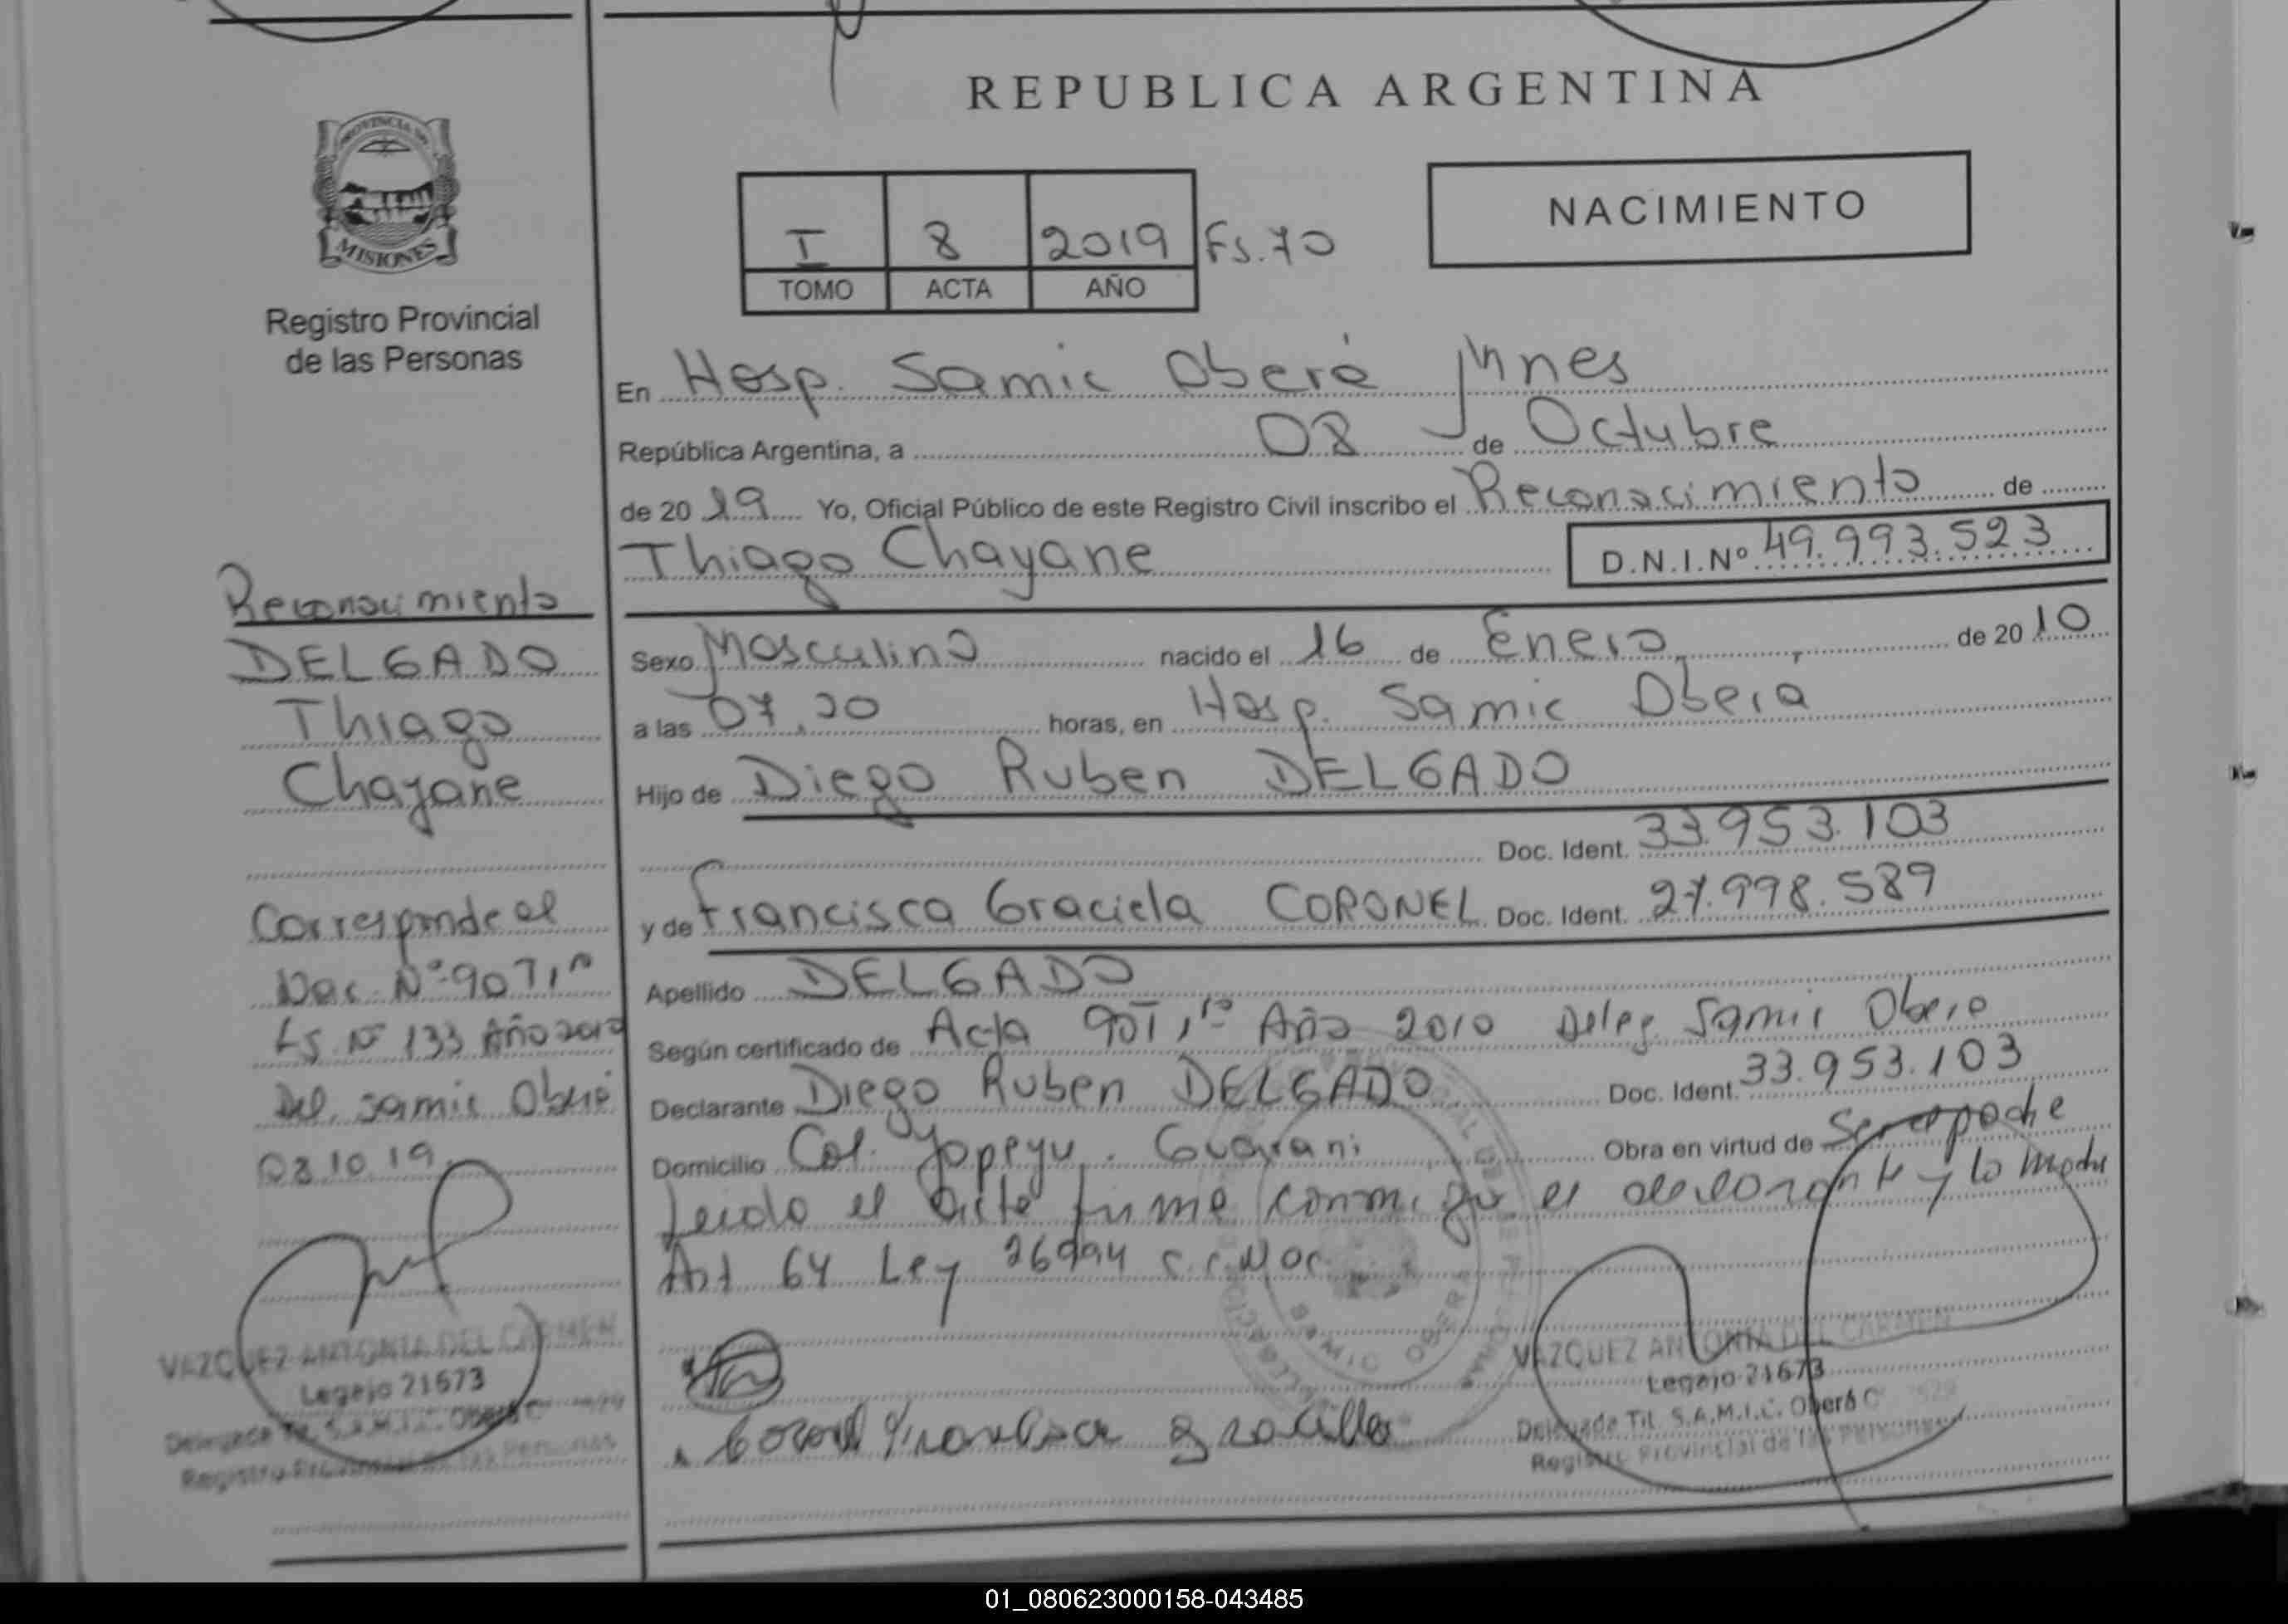 REPUBLICA ARGENTINA
PROVINCIA DE
MISIONES
Registro Provincial
de las Personas
I 8 2019 Fs. 70
TOMO ACTA AÑO
NACIMIENTO
En Hosp. Samic Oberá Mnes
República Argentina, a 08 de Octubre
de 2019 Yo, Oficial Público de este Registro Civil inscribo el Reconocimiento de
Thiago Chayane D.N.I.Nº 49.993.523
Sexo Masculino nacido el 16 de Enero de 2010
a las 07,20 horas, en Hosp. Samic Obera
Hijo de Diego Ruben DELGADO
Doc. Ident. 33.953.103
y de Francisca Graciela CORONEL Doc. Ident. 27.998.589
Apellido DELGADO
Según certificado de Acta 907 Año 2010 Deleg. Samic Obera
Declarante Diego Ruben DELGADO Doc. Ident. 33.953.103
Domicilio Col. Yapeyu. Guarani Obra en virtud de
Leido el acta firma conmigo el declarante y la madre
Art 64 Ley 26994
Coronel Francisca
VAZQUEZ ANTONIA DEL CARMEN
Legajo 21673
Delegada Tit. S.A.M.I.C. Oberá
Registro Provincial de las Personas
Reconocimiento
DELGADO
Thiago
Chayane
Corresponde al
Nac. Nº 907
Fs Nº 133 Año 2010
Del. Samic Oberá
08.10.19
VAZQUEZ ANTONIA DEL CARMEN
Legajo 21673
Delegada Tit. S.A.M.I.C. Oberá
Registro Provincial de las Personas
SAMIC OBERA
01_080623000158-043485